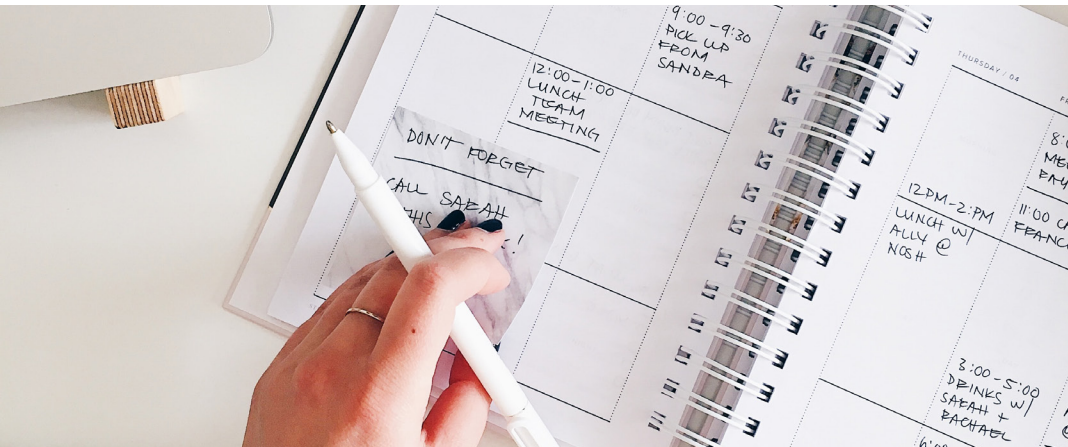 9:00-9:30
PICK UP
FROM
SANDRA
12:00-1:00
LUNCH
TEAM
MEETING
DON'T FORGET
CALL SARAH
THIS
!
THURSDAY / 04
12PM-2:PM
LUNCH W/
ALLY @
NOSH
11:00
3:00-5:00
DRINKS W/
SARAH +
RACHAEL